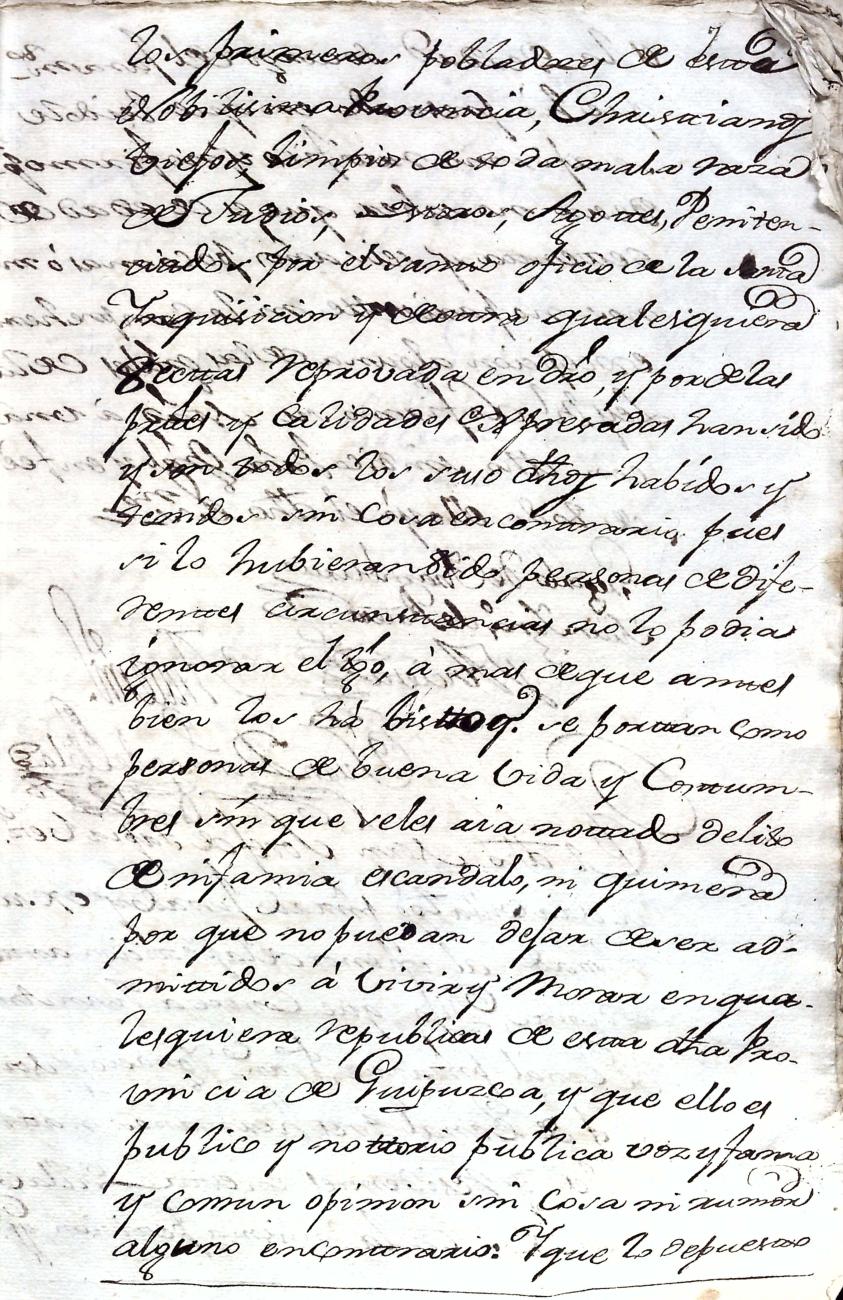 los primeros pobladores de esta
Nobilisima Provincia, Christianos
viejos limpios de toda mala raza
de Judios, Moros, Agottes, Peniten-
ciados por el santo oficio de la santa
Inquisicion y de otra qualesquiera
Secttas reprovada en dr̃o, y por de las
prttes y Calidades expresadas han sido
y son todos los suso dh̃os habidos y
tenidos sin Cosa en conttrario pues
si lo hubieran sido personas de dife-
rentes circunstancias no lo podia
ignorar el tgo, à mas de que antes
bien los há visto q.e se portan como
personas de buena vida y Costum-
bres sin que seles aia nottado delito
de infamia escandalo, ni quimera
por que no puedan dejar de ser ad-
mittidos à vivir y Morar en qua-
lesquiera republicas de esta dh̃a Pro-
vincia de Guipuzcoa, y que ello es
publico y nottorio publica voz y fama
y comun opinion sin Cosa ni rumor
alguno en conttrario: Y que lo depuesto